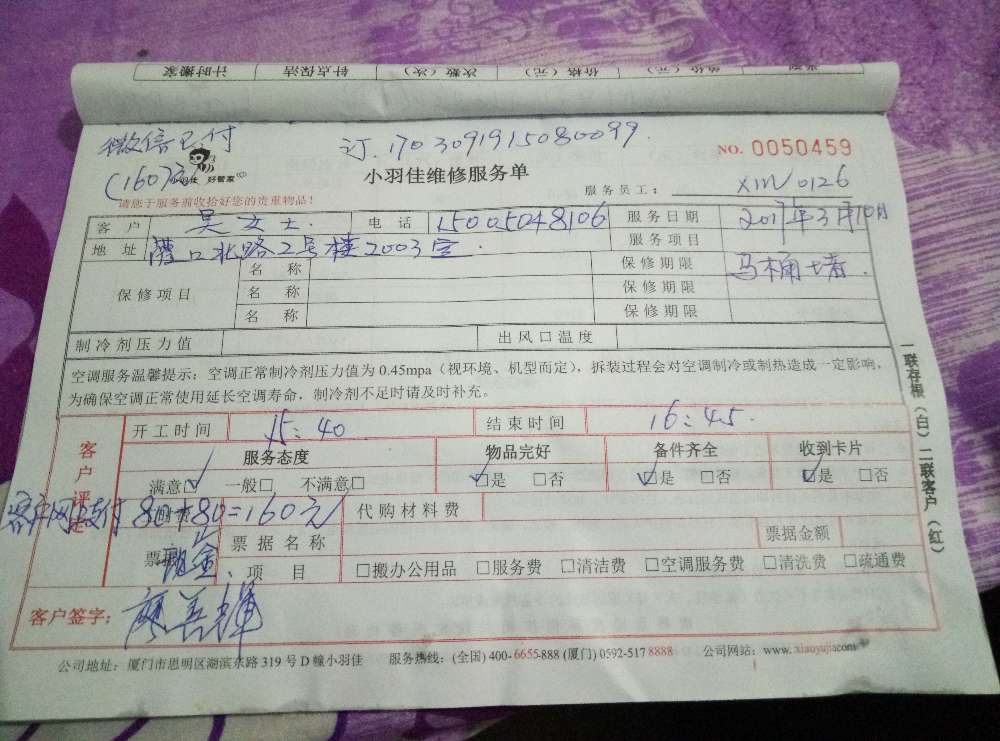 计时搬家 钟点保洁 次数（次） 价格（元）
微信已付 订.1703091915080099. NO. 0050459
(160元) 好管家 小羽佳维修服务单 服务员工： XM0126
请您于服务前收拾好您的贵重物品！
客户 吴女士. 电话 15005048106 服务日期 2017年3月10日
地址 北路2号楼2003室. 服务项目
保修项目 名称 保修期限 马桶堵.
名称 保修期限
名称 保修期限
制冷剂压力值 出风口温度
空调服务温馨提示：空调正常制冷剂压力值为 0.45mpa（视环境、机型而定），拆装过程会对空调制冷或制热造成一定影响，
为确保空调正常使用延长空调寿命，制冷剂不足时请及时补充。
客户评定 开工时间 15:40 结束时间 16:45
服务态度 物品完好 备件齐全 收到卡片
满意□ 一般□ 不满意□ □是 □否 □是 □否 □是 □否
客户网上支付 80+80=160元 代购材料费
票据 现金. 票据名称 票据金额
项目 □搬办公用品 □服务费 □清洁费 □空调服务费 □清洗费 □疏通费
客户签字： 廖善辉
公司地址：厦门市思明区湖滨东路 319 号 D 幢小羽佳 服务热线：(全国) 400-6655-888 (厦门) 0592-517 8888 公司网站：www.xiaoyujia.com
一联存根（白）二联客户（红）